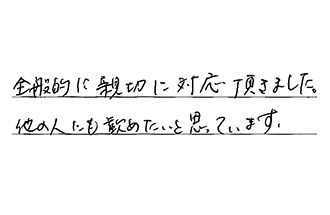 全般的に親切に対応頂きました。
他の人にも歓めたいと思っています。